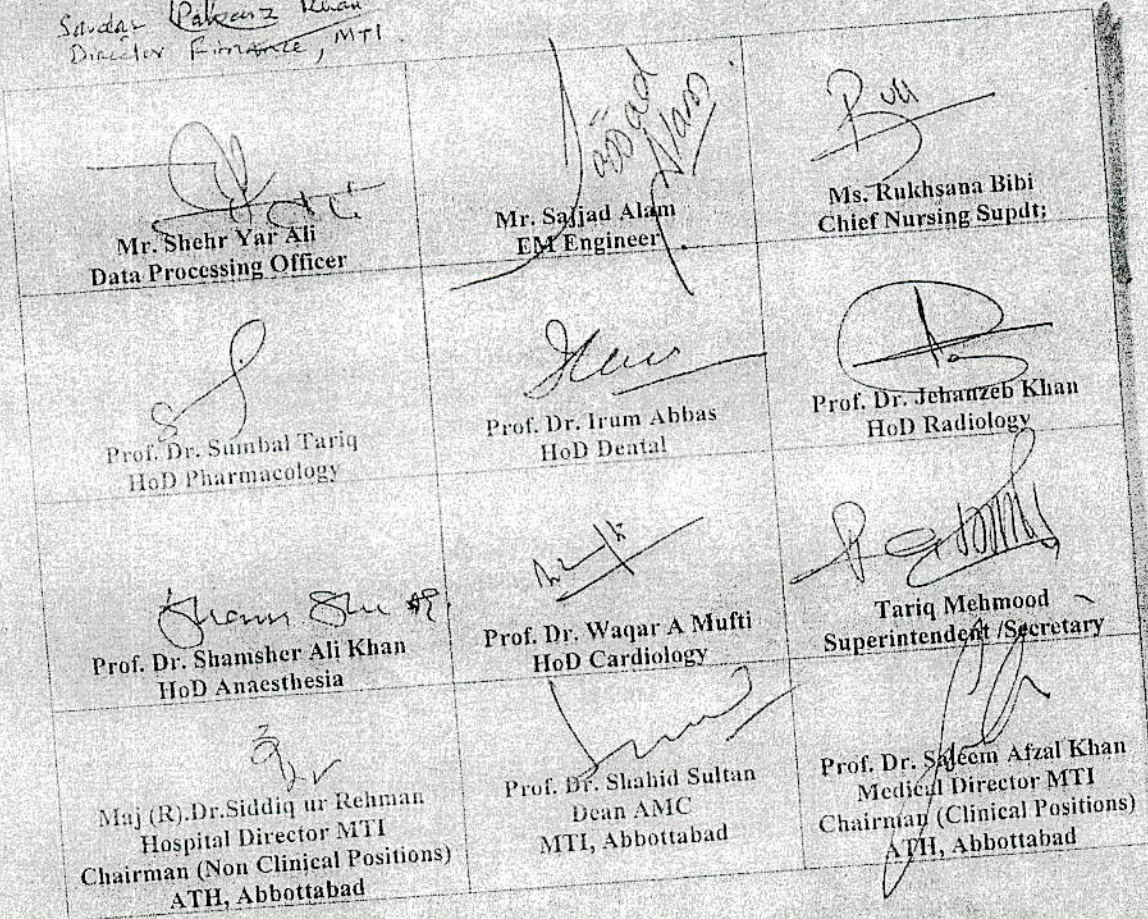 Khan
Director Finance, MTI
Sajjad
Alam
Mr. Shehr Yar Ali
Data Processing Officer
Mr. Sajjad Alam
EM Engineer
Ms. Rukhsana Bibi
Chief Nursing Supdt;
Prof. Dr. Sumbal Tariq
HoD Pharmacology
Prof. Dr. Irum Abbas
HoD Dental
Prof. Dr. Jehanzeb Khan
HoD Radiology
Prof. Dr. Shamsher Ali Khan
HoD Anaesthesia
Prof. Dr. Waqar A Mufti
HoD Cardiology
Tariq Mehmood
Superintendent /Secretary
Maj (R).Dr.Siddiq ur Rehman
Hospital Director MTI
Chairman (Non Clinical Positions)
ATH, Abbottabad
Prof. Dr. Shahid Sultan
Dean AMC
MTI, Abbottabad
Prof. Dr. Saleem Afzal Khan
Medical Director MTI
Chairman (Clinical Positions)
ATH, Abbottabad